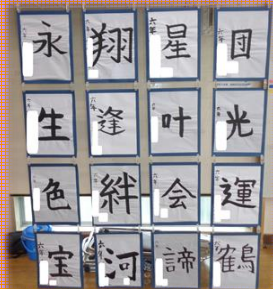 永 翔 星 団
生 逢 叶 光
色 絆 会 運
宝 河 諦 鶴
六年